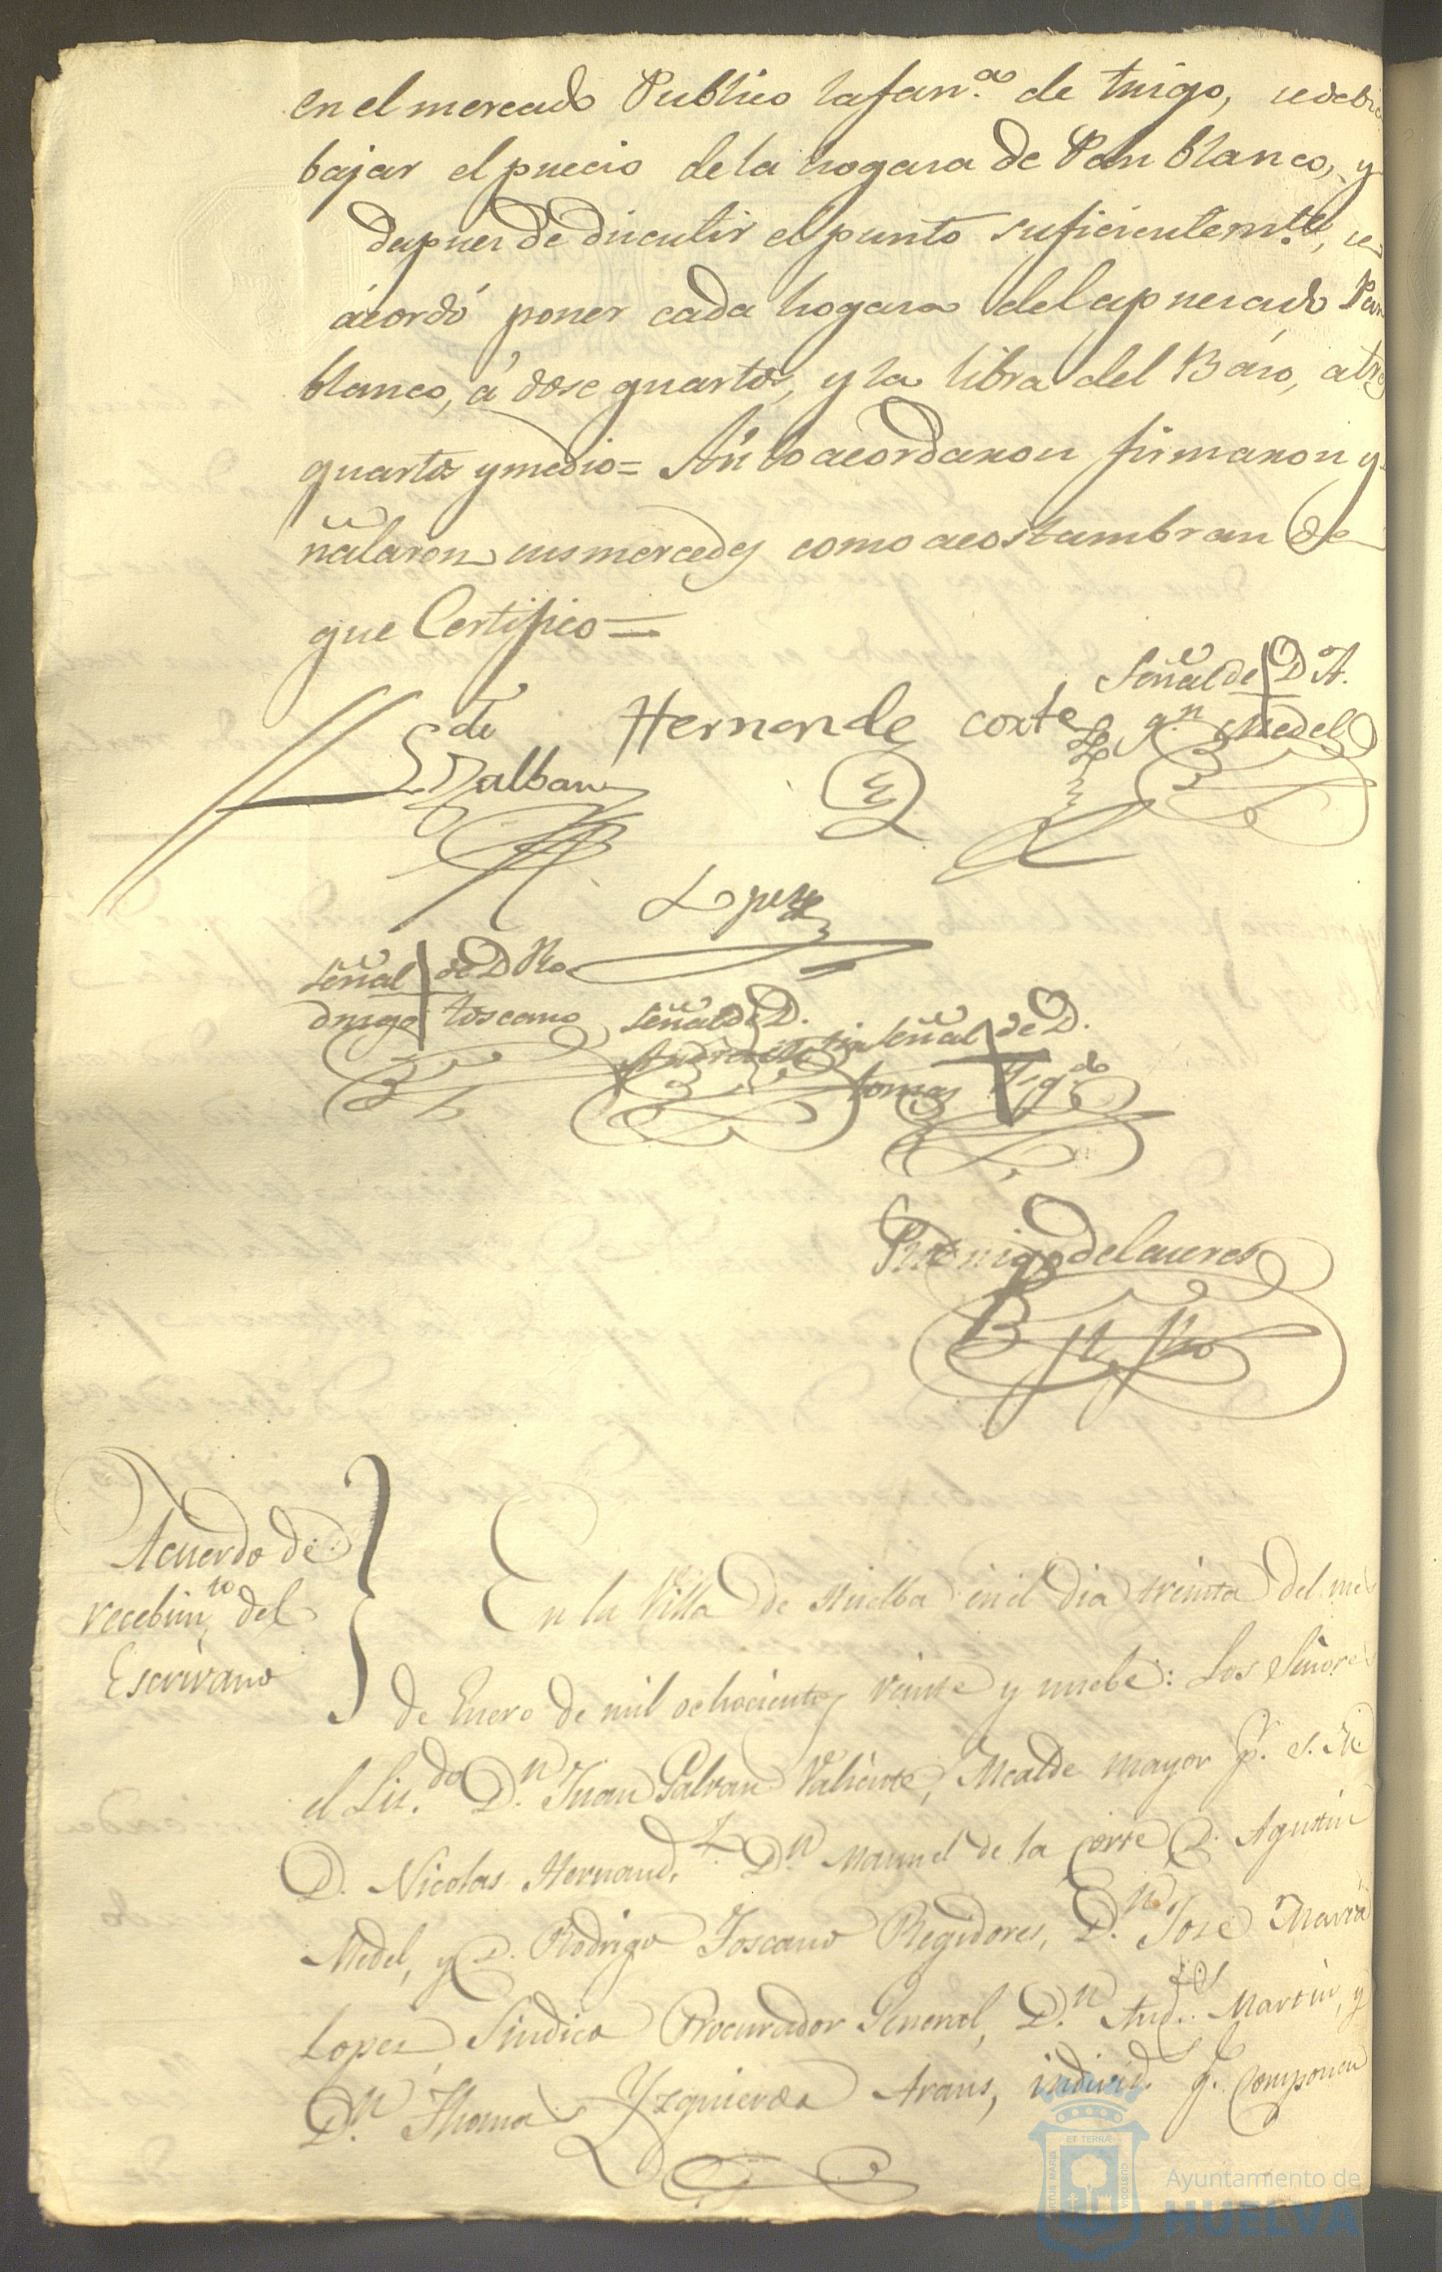 en el mercado Publico la fan.ª de trigo, se debia
bajar el precio de la hogara de Pan blanco, y
depues de dicutir el punto suficientem.te, se
acordó poner cada hogara del apresado Pan
blanco, á dose quartos, y la libra del Baso, a tres
quartos y medio= Asi lo acordaron firmaron y se
ñalaron sus mercedes como acostumbran de
que Certifico=
Señal de D A.
Ldo Galban
Hernande
corte
g.n Medel
Lopez
Señal de D Ro
drigo toscano
Señal de D.
Andres Martin
Señal de D.
tomas Izq.do
Rodrigo
Acuerdo de
recebim.to del
Escrivano
En la Villa de Huelba en el dia treinta del mes
de Enero de mil ochocientos veinte y nuebe: Los Señores
el Lic.do D.n Juan Galvan Valiente, Alcalde mayor p.r S. M.
D. Nicolas Hernand.z D.n Manuel de la Corte, D. Agustin
Medel, y D. Rodrigo Toscano Regidores, D.n Jose Maria
Lopez, Sindico Procurador General, D.n And.s Martin, y
D.n Thomas Yzquierdo Arans, individ.s q.e componen
Ayuntamiento de
HUELVA